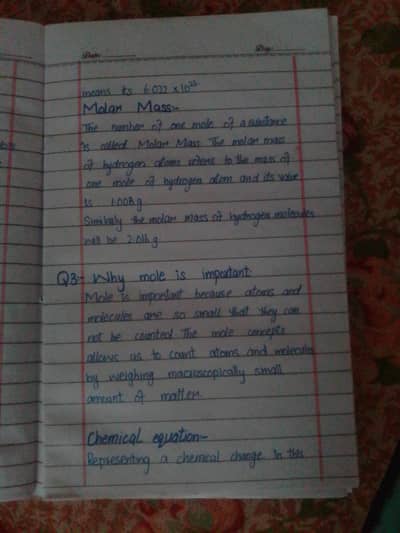 Date: Day:
means its 6.022 x 10²³
Molar Mass:-
The number of one mole of a substance
is called Molar Mass. The molar mass
of hydrogen atoms refers to the mass of
one mole of hydrogen atom and its value
is 1.008 g
Similarly the molar mass of hydrogen molecules
will be 2.016 g
Q3:- Why mole is important.
Mole is important because atoms and
molecules are so small that they can
not be counted. The mole concepts
allows us to count atoms and molecules
by weighing macroscopically small
amount of matter.
Chemical equation:-
Representing a chemical change in this